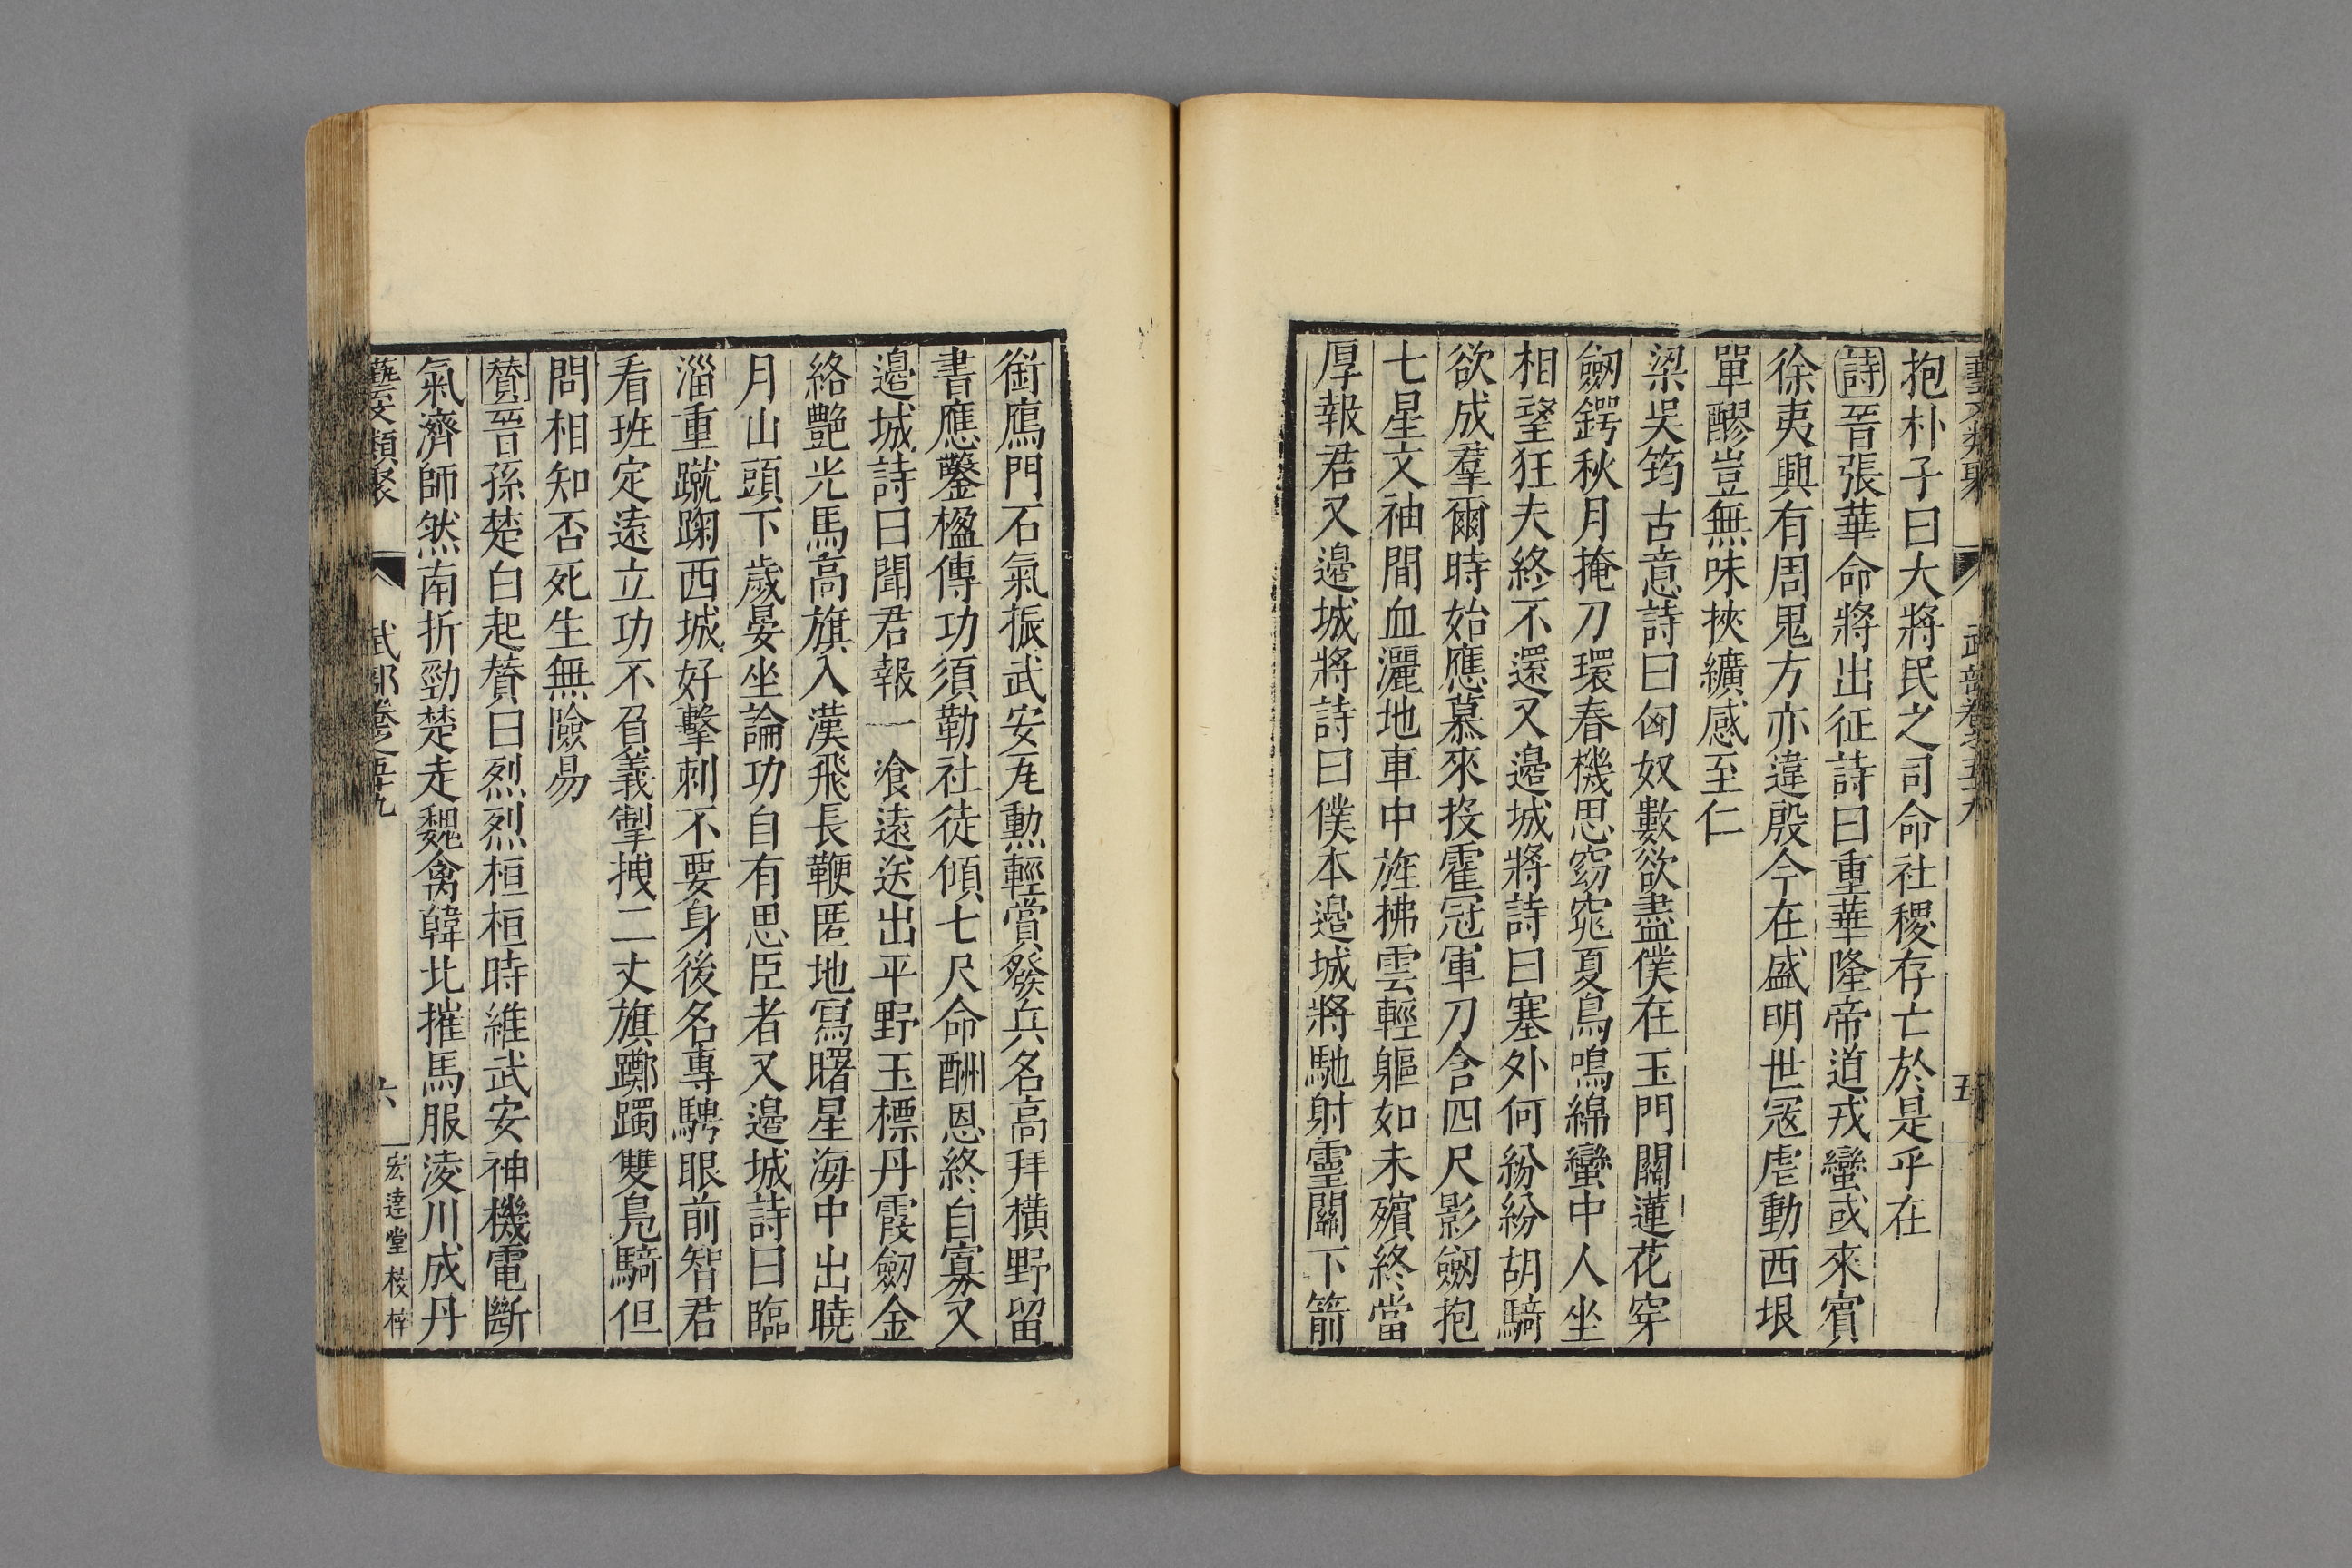 藝文類聚 武部卷之五十九 五
抱朴子曰大將民之司命社稷存亡於是乎在
詩晉張華命將出征詩曰重華隆帝道戎蠻或來賓
徐夷興有周鬼方亦違殷今在盛明世寇虐動西垠
單醪豈無味挾纊感至仁
梁吳筠古意詩曰匈奴數欲盡僕在玉門關蓮花穿
劒鍔秋月掩刀環春機思窈窕夏鳥鳴綿蠻中人坐
相望狂夫終不還又邉城將詩曰塞外何紛紛胡騎
欲成羣爾時始應慕來投霍冠軍刀含四尺影劒抱
七星文袖間血灑地車中旌拂雲輕軀如未殯終當
厚報君又邉城將詩曰僕本邉城將馳射靈關下箭
銜鴈門石氣振武安瓦勲輕賞發兵名高拜橫野留
書應鑿楹傳功須勒社徒傾七尺命酬恩終自寡又
邉城詩曰聞君報一飡遠送出平野玉標丹霞劒金
絡艷光馬高旗入漢飛長鞭匿地寫曙星海中出曉
月山頭下歲晏坐論功自有思臣者又邉城詩曰臨
淄重蹴踘西城好擊刺不要身後名專騁眼前智君
看班定遠立功不負義掣拽二丈旗躑躅雙鳧騎但
問相知否死生無險易
賛晉孫楚白起賛曰烈烈桓桓時維武安神機電斷
氣濟師然南折勁楚走魏禽韓北摧馬服淩川成丹
藝文類聚 武部卷之五十九 六 宏達堂校梓